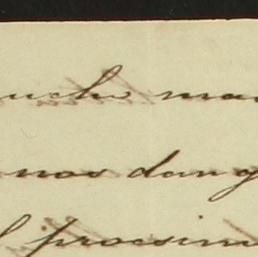 ucho mas
nos dan g
l procsim